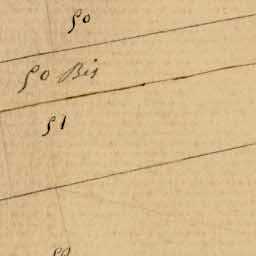 50
50 Bis
51